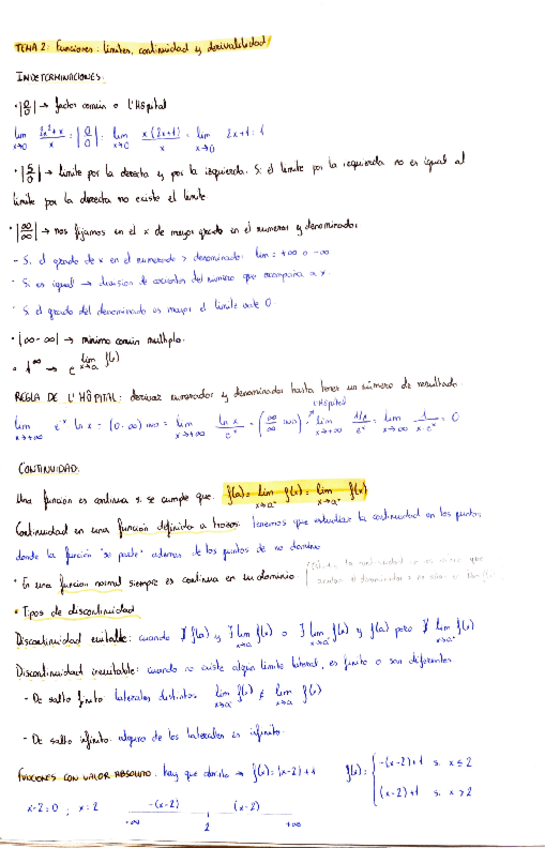 TEMA 2: Funciones: límites, continuidad y derivabilidad
INDETERMINACIONES:
· |0/0| → factor común o l'Hôpital
lim x→0 2x²+x / x = |0/0| = lim x→0 x(2x+1) / x = lim x→0 2x+1 = 1
→ límite por la derecha y por la izquierda. Si el límite por la izquierda no es igual al
límite por la derecha no existe el límite
· |∞/∞| → nos fijamos en el x de mayor grado en el numerador y denominador
- Si el grado de x en el numerador > denominador: lim = +∞ o -∞
· Si es igual → división de cocientes del número que acompaña a x.
· Si el grado del denominador es mayor el límite vale 0.
· |∞-∞| → mínimo común múltiplo.
· 1^∞ → e^lim x→a f(x)
REGLA DE L'HÔPITAL: derivar numerador y denominador hasta tener un número de resultado.
l'Hôpital
lim x→+∞ ln x = (0·∞) IND = lim x→+∞ ln x / e^x = (∞/∞ IND) = lim x→+∞ 1/x / e^x = lim x→∞ 1 / x·e^x = 0
CONTINUIDAD:
Una función es continua si se cumple que: f(a) = lim x→a⁻ f(x) = lim x→a⁺ f(x)
Continuidad en una función definida a trozos: tenemos que estudiar la continuidad en los puntos
donde la función "se parte" además de los puntos de no dominio
· En una función normal siempre es continua en su dominio
· Tipos de discontinuidad
Discontinuidad evitable: cuando ∄ f(a) y ∃ lim x→a f(x) o ∃ lim x→a f(x) y f(a) pero
Discontinuidad inevitable: cuando no existe algún límite lateral, es finito o son diferentes
- De salto finito: laterales distintos lim x→a⁻ f(x) ≠ lim x→a⁺ f(x)
- De salto infinito: alguno de los laterales es infinito.
FUNCIONES CON VALOR ABSOLUTO: hay que abrirlo → f(x) = |x-2|+1 f(x) = { -(x-2)+1 si x≤2
(x-2)+1 si x>2
x-2=0 ; x=2 -(x-2) (x-2)
-∞ 2 +∞